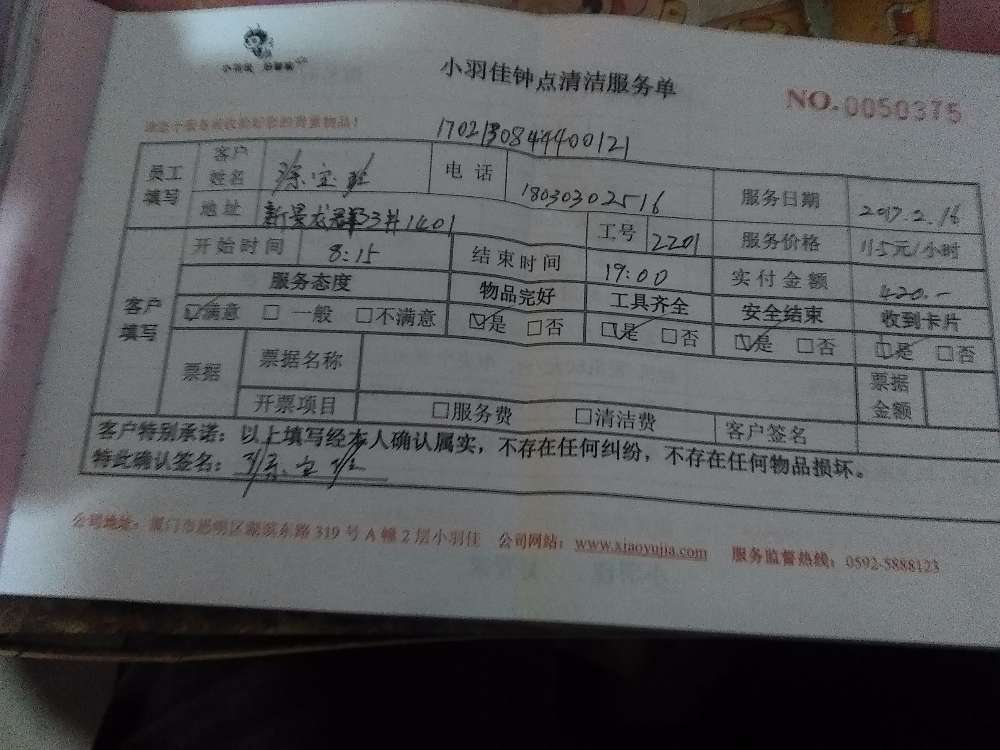 小羽佳钟点清洁服务单
NO.0050375
170213084400121
员工填写 客户姓名 宝 电话 18030302516 服务日期 2017.2.16
地址 新景龙 33#1401 工号 2201 服务价格 元/小时
客户填写 开始时间 8:15 结束时间 19:00 实付金额 420.-
服务态度 物品完好 工具齐全 安全结束 收到卡片
☑满意 □一般 □不满意 ☑是 □否 ☑是 □否 ☑是 □否 ☑是 □否
票据 票据名称 票据金额
开票项目 □服务费 □清洁费 客户签名
客户特别承诺：以上填写经本人确认属实，不存在任何纠纷，不存在任何物品损坏。
特此确认签名： 宝
公司地址：厦门市思明区湖滨东路319号A幢2层小羽佳 公司网站：www.xiaoyujia.com 服务监督热线：0592-5888123